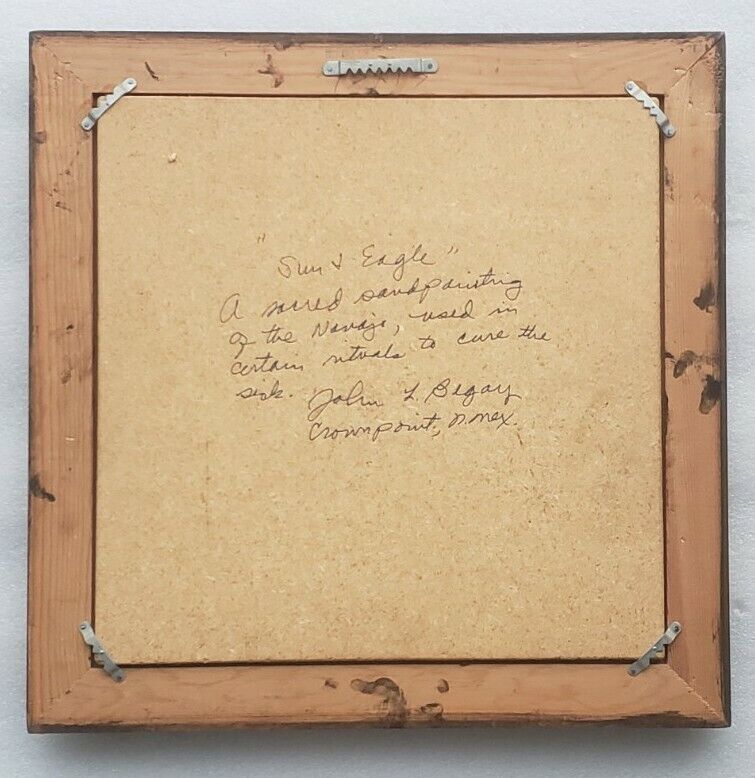 "Sun & Eagle"
A sacred sandpainting
of the Navajo, used in
certain rituals to cure the
sick. John L. Begay
Crownpoint, N. Mex.